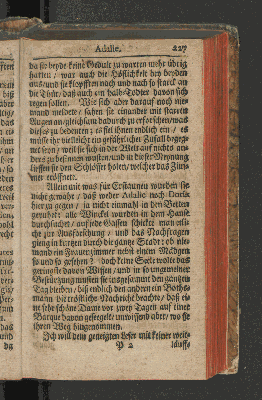 Adalie. 227
da sie beyde keine Gedult zu warten mehr übrig
hatten / war auch die Höfligkeit bey beyden
aus/ und sie klopfften noch und nach so starck an
die Thür/ daß auch ein halb-Todter davon sich
regen sollen. Wie sich aber darauf noch nie-
mand meldete / sahen sie einander mit starren
Augen an gleichsam dadurch zu erforschen/ was
dieses zu bedeuten: es fiel ihnen endlich ein / es
müste ihr vielleicht ein gefährlicher Zufall begeg-
net seyn / weil sie sich in der Welt auf nichts an-
ders zu besinnen wusten/ und in dieser Meynung
liessen sie den Schlösser holen/ welcher das Zim-
mer eröffnete.
Allein was für Erstaunen wurden sie
nicht gewahr / daß weder Adalie noch Doris
hier zugegen / ja nicht einmahl in den Betten
geruhet: alle Winckel wurden in dem Hause
durchsuchet / auf jede Gassen schickte man etli-
che zur Ausforschung / und das Nachfragen
gieng in kurtzen durch die gantze Stadt: ob nie-
mand ein Frauenzimmer nebst einem Mädgen
so und so gesehen? doch keine Seele wolte das
geringste davon wissen/ und in so ungemeiner
Bestürtzung musten sie insgesammt den gantzen
Tag bleiben / biß endlich den andern ein Boths-
mann die tröstliche Nachricht brachte / daß ei-
ne sehr schöne Dame vor zwey Tagen auf einer
Barque davon gesegelt/ unwissend aber/ wo sie
ihren Weg hingenommen.
Ich will dem geneigten Leser mit keiner weit-
P 2 läuff-